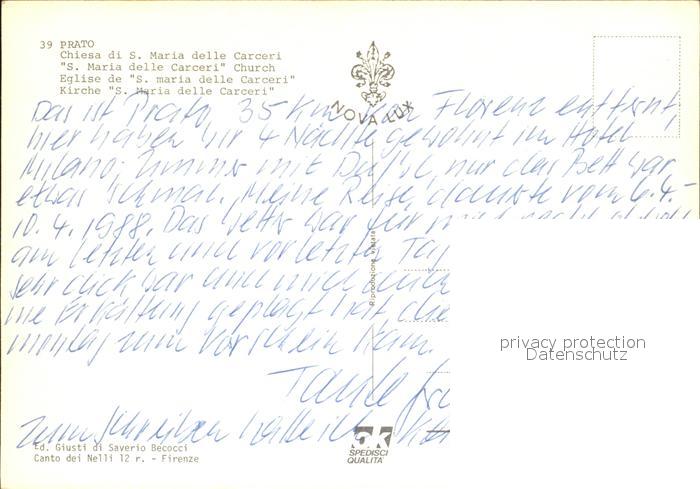 39 PRATO
Chiesa di S. Maria delle Carceri
"S. Maria delle Carceri" Church
Eglise de "S. maria delle Carceri"
Kirche "S. Maria delle Carceri"
NOVA LUX
Das ist Prato, 35 Km von Florenz entfernt,
hier haben wir 4 Nächte gewohnt im Hotel
Milano. Zimmer mit Du/WC, nur das Bett war
etwas schmal. Meine Reise dauerte vom 6.4.-
10.4.1988. Das Wetter war für mich
am letzten und vorletzten Tag
sehr dick war und mich auch
ne Erkältung geplagt hat die
montag zum Vorschein kam.
Tante
zum Schreiben hatte ich
Riproduzione vietata
privacy protection
Datenschutz
Ed. Giusti di Saverio Becocci
Canto dei Nelli 12 r. - Firenze
SK
SPEDISCI
QUALITÀ